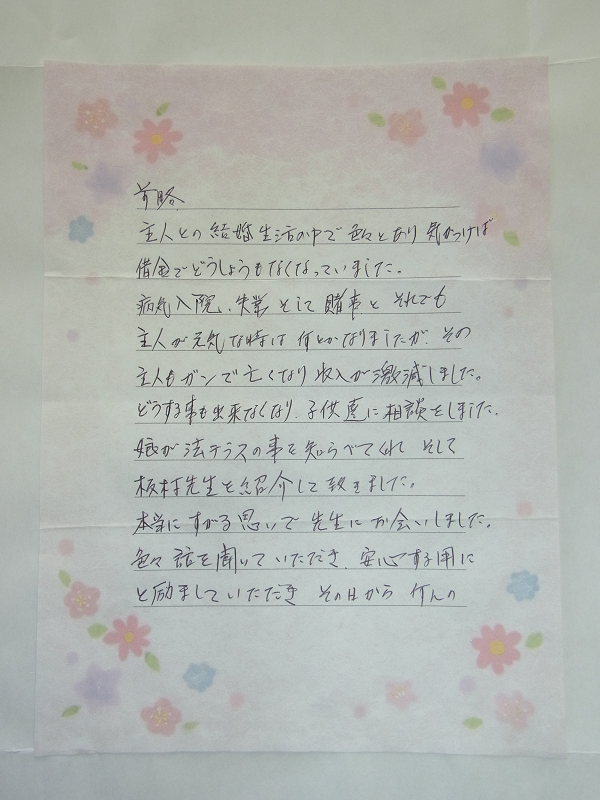 前略
主人との結婚生活の中で色々とあり気がつけば
借金でどうしょうもなくなっていました。
病気入院、失業そして賭事とそれでも
主人が元気な時は何とかなりましたが、その
主人もガンで亡くなり収入が激減しました。
どうする事も出来なくなり、子供達に相談をしました。
娘が法テラスの事を知らべてくれそして
板村先生を紹介して頂きました。
本当にすがる思いで先生にお会いしました。
色々話を聞いていただき、安心する用に
と励ましていただきその日から何んの